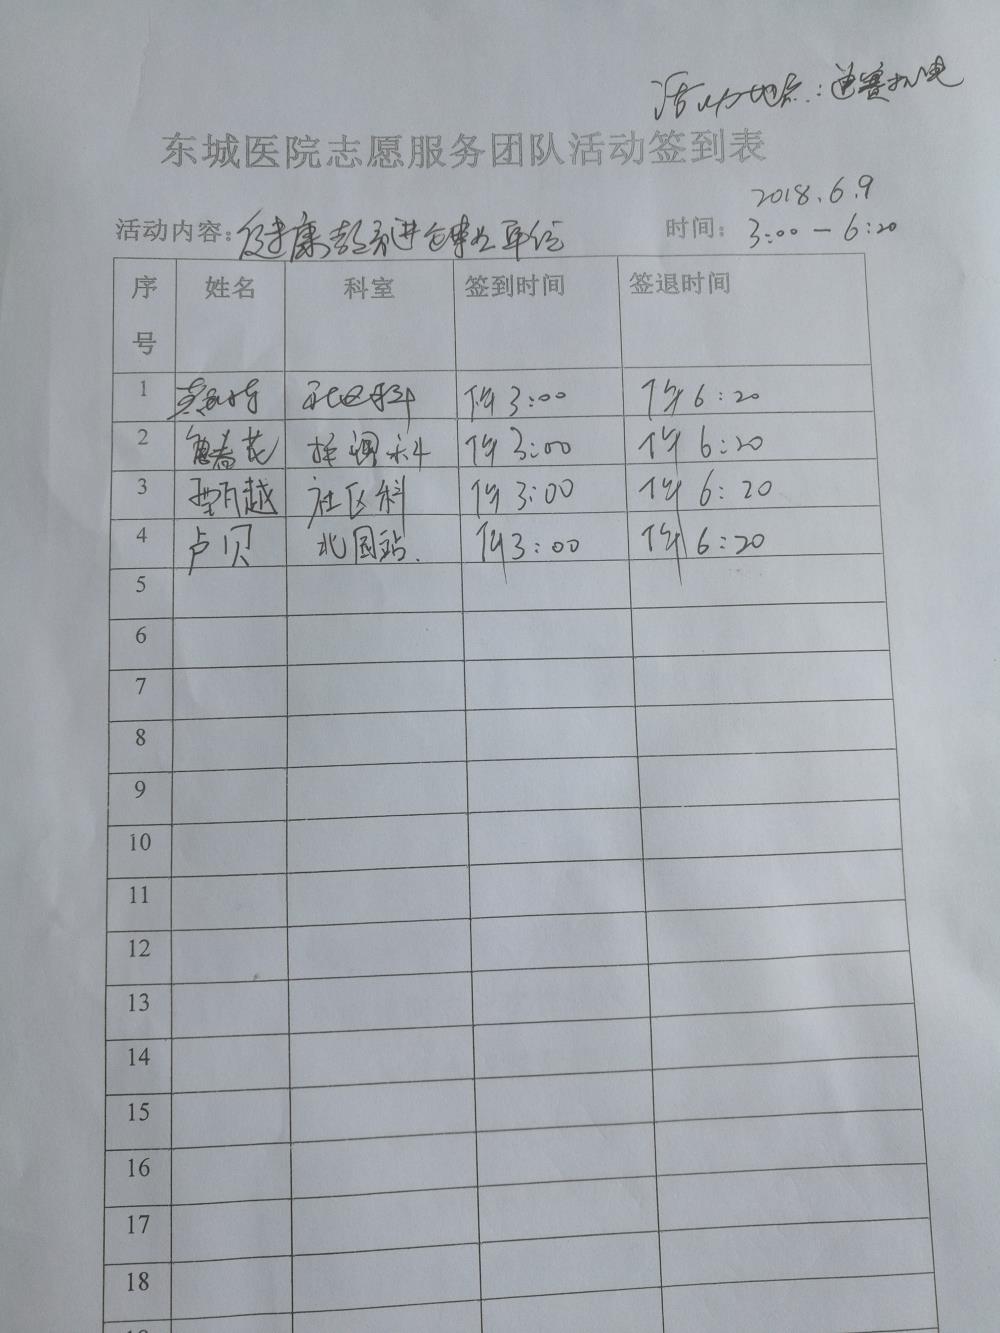 活动地点：迪赛机电
东城医院志愿服务团队活动签到表
2018.6.9
活动内容：健康教育进企事业单位 时间：3:00－6:20
序号 姓名 科室 签到时间 签退时间
1 社区科 下午3:00 下午6:20
2 春花 科 下午3:00 下午6:20
3 甄月越 社区科 下午3:00 下午6:20
4 卢贝 北园站. 下午3:00 下午6:20
5
6
7
8
9
10
11
12
13
14
15
16
17
18